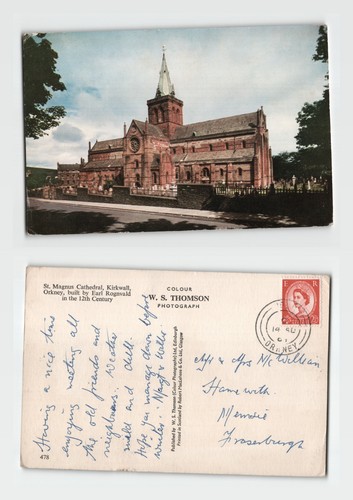 St. Magnus Cathedral, Kirkwall,
Orkney, built by Earl Rognvald
in the 12th Century
COLOUR
W. S. THOMSON
PHOTOGRAPH
Having a nice time
enjoying meeting all
the old friends and
neighbours. Weather
mild and dull.
Hope you manage down before
winter. Mary & Walls.
478
Published by W. S. Thomson (Colour Photographs) Ltd, Edinburgh
Printed in Scotland by Robert MacLehose & Co. Ltd, Glasgow
E R
14 AU
61
ORKNEY
Mr & Mrs McWilliam
Memsie
Fraserburgh